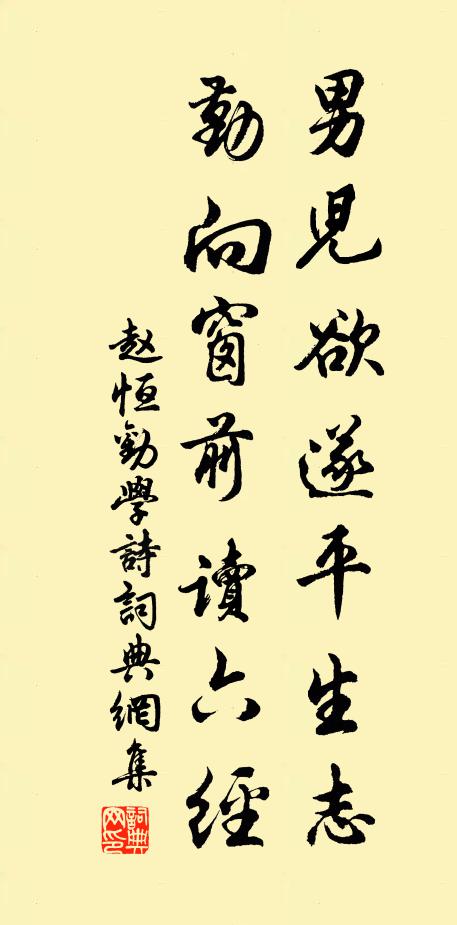 男兒欲遂平生志
勤向窗前讀六經
赵恒勸學詩詞典網集
詞典网印